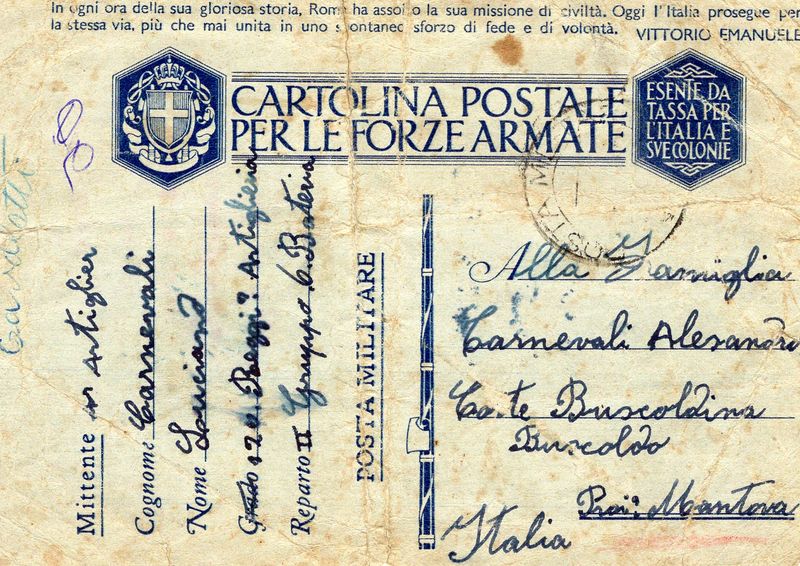 In ogni ora della sua gloriosa storia, Roma ha assolto la sua missione di civiltà. Oggi l'Italia prosegue per
la stessa via, più che mai unita in uno spontaneo sforzo di fede e di volontà. VITTORIO EMANUELE
CARTOLINA POSTALE
PER LE FORZE ARMATE
ESENTE DA
TASSA PER
L'ITALIA E
SVE COLONIE
Mittente Artiglier
Cognome Carnevali
Nome Luciano
Grado 120 Artiglieria
Reparto II Gruppo 6 Bateria
POSTA MILITARE
POSTA M
Alla Famiglia
Carnevali Alesandro
Corte Buscoldina
Buscoldo
Mantova
Italia